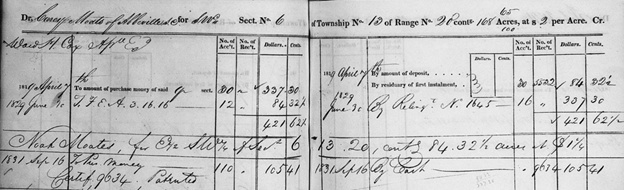 Dr. Moats of for SW¼ Sect. No. 6 of Township No. 13 of Range No. 20 contg 168 65/100 Acres, at $ 2 per Acre. Cr.
No. of Acc't. No. of Rec't. Dollars. Cents. No. of Acc't. No. of Rec't. Dollars. Cents.
1819 April 7th To amount of purchase money of said qr sect. 20 " 337 30 1819 April 7th By amount of deposit
By residuary of first instalment, 20 5522 84 32½
1829 June 30 T. F. E. A. 3. 16. 16 12 84 32½ 1829 June 30 By Relinqt. N. 1645 16 " 337 30
421 62½ $ 421 62½
Noah Moates, for E½ SW¼ of Sect 6 13. 20, contg 84. 32½ acres at $ 1¼
1831 Sep 16 To this money 110 105 41 1831 Sep 16 By Cash 9634 105 41
Certif. 9634. Patented